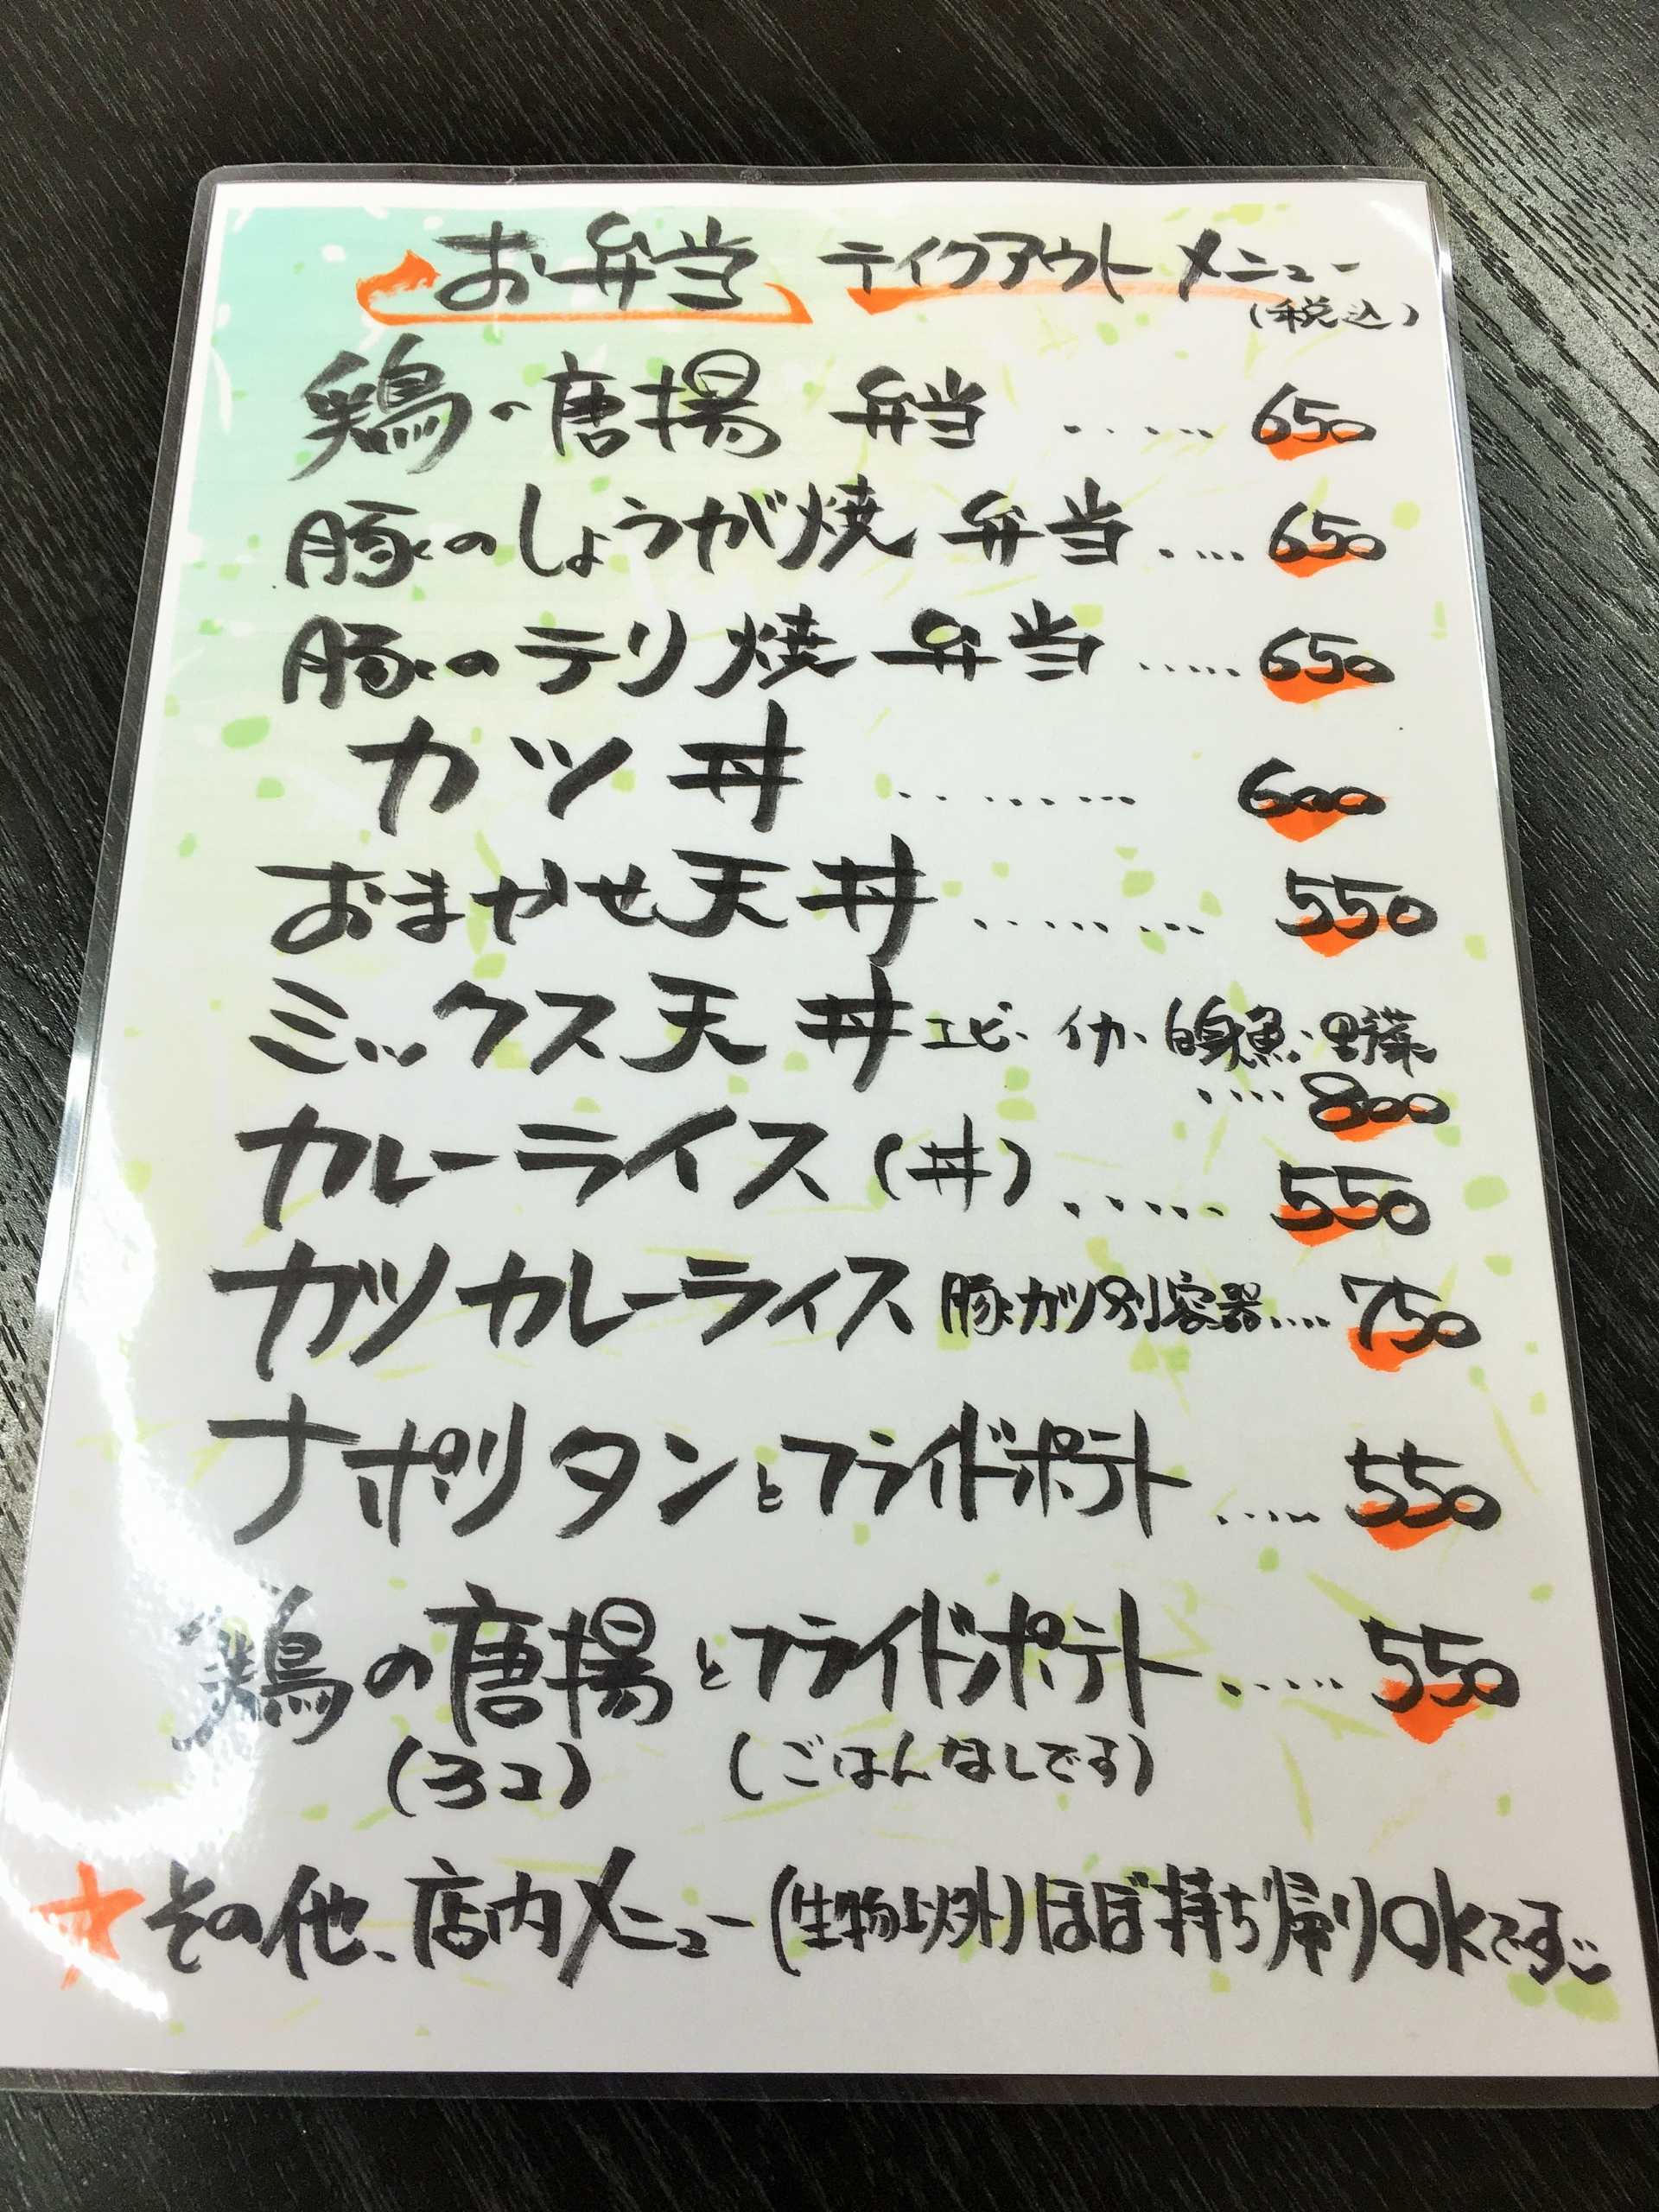 お弁当 テイクアウト メニュー
(税込)
鶏の唐揚 弁当 ...... 650
豚のしょうが焼 弁当 ..... 650
豚のテリ焼 弁当 ...... 650
カツ丼 ......... 600
おまかせ天丼 ......... 550
ミックス天丼 エビ・イカ・白身魚・野菜
.... 800
カレーライス (丼) ...... 550
カツカレーライス 豚カツ別容器 ..... 750
ナポリタンとフライドポテト ..... 550
鶏の唐揚とフライドポテト ...... 550
(3コ) (ごはんなしです)
★その他、店内メニュー(生物以外)ほぼ持ち帰りOKです